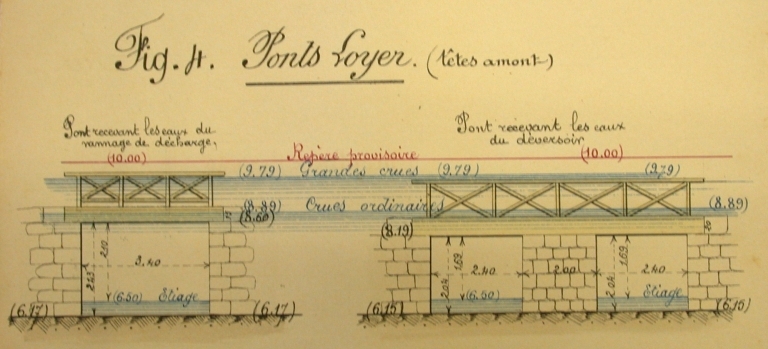 Fig. 4. Ponts Loyer. (têtes amont)
Pont recevant les eaux du
vannage de décharge,
(10.00)
Pont recevant les eaux
du déversoir
(10.00)
Repère provisoire
(9.79) Grandes crues (9.79) (9.79)
(8.89) Crues ordinaires (8.89)
(8.19)
3.40
2.10
(6.50) Etiage
(6.17) (6.17)
2.04 1.69 2.40 2.00 2.04 1.69 2.40
(6.50) Etiage
(6.15) (6.15)